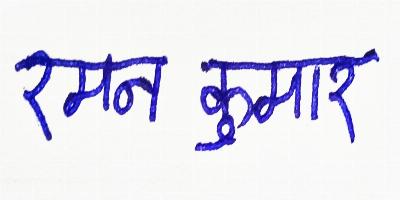 रमन कुमार